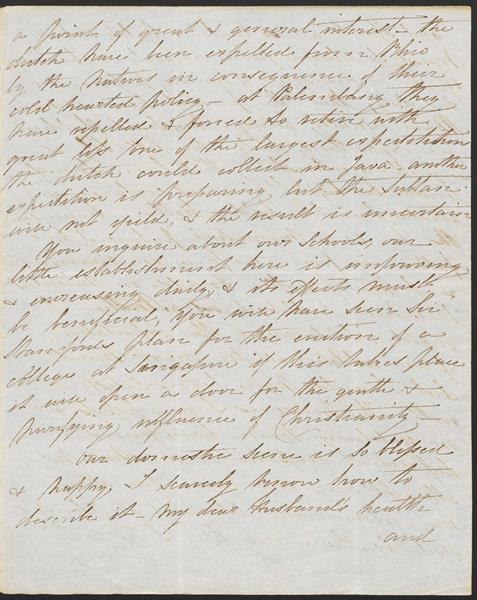 a point of great & general interest - the
dutch have been expelled from Rhio
by the Natives in consequence of their
cold hearted policy - at Palembang they
have repelled & forced to retire with
great loss one of the largest expectition
the dutch could collect in Java another
expectition is preparing but the Sultan
will not yield & the result is uncertain
You inquire about our Schools, our
little establishment here is improving
& encreasing daily, & its effects must
be beneficial, you will have seen Sir
Stamfords plan for the erection of a
college at Singapore if this takes place
it will open a door for the gentle &
purifying influence of Christianity -
our domestic scene is so blessed
& happy, I scarcely know how to
describe it - My dear Husband's health
and